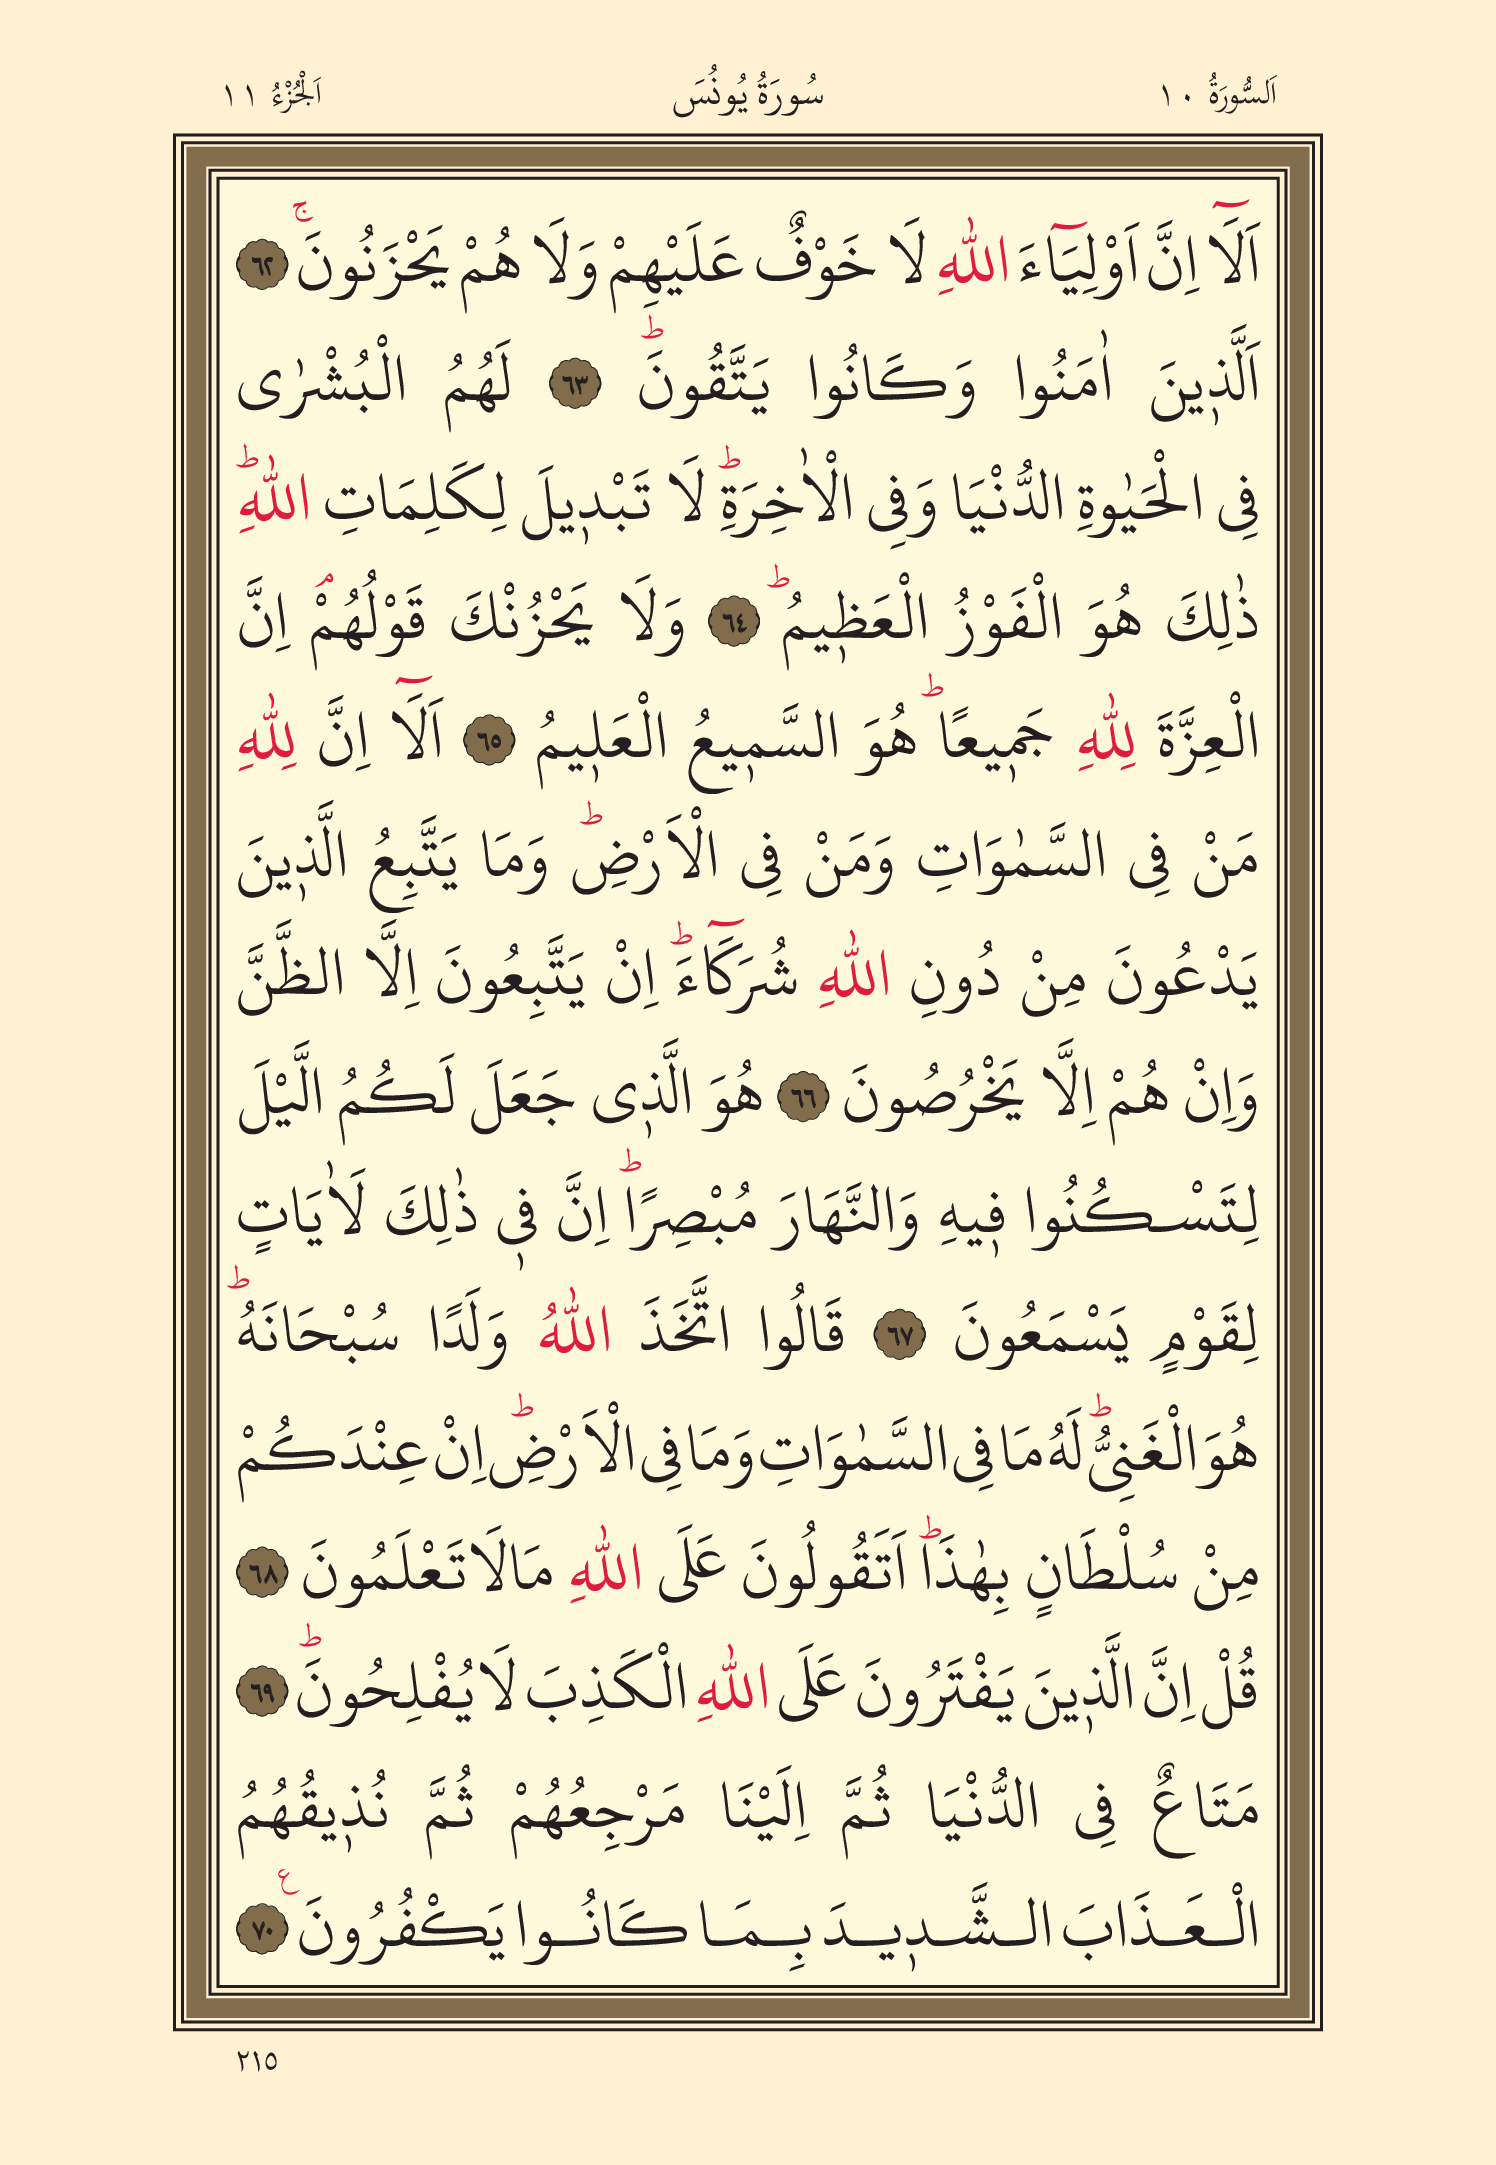 اَلسُّورَةُ ١٠ سُورَةُ يُونُسَ اَلْجُزْءُ ١١
اَلَٓا اِنَّ اَوْلِيَٓاءَ اللّٰهِ لَا خَوْفٌ عَلَيْهِمْ وَلَا هُمْ يَحْزَنُونَۚ ٦٢
اَلَّذ۪ينَ اٰمَنُوا وَكَانُوا يَتَّقُونَۜ ٦٣ لَهُمُ الْبُشْرٰى
فِى الْحَيٰوةِ الدُّنْيَا وَفِى الْاٰخِرَةِۜ لَا تَبْد۪يلَ لِكَلِمَاتِ اللّٰهِۜ
ذٰلِكَ هُوَ الْفَوْزُ الْعَظ۪يمُۜ ٦٤ وَلَا يَحْزُنْكَ قَوْلُهُمْۢ اِنَّ
الْعِزَّةَ لِلّٰهِ جَم۪يعًاۜ هُوَ السَّم۪يعُ الْعَل۪يمُ ٦٥ اَلَٓا اِنَّ لِلّٰهِ
مَنْ فِى السَّمٰوَاتِ وَمَنْ فِى الْاَرْضِۜ وَمَا يَتَّبِعُ الَّذ۪ينَ
يَدْعُونَ مِنْ دُونِ اللّٰهِ شُرَكَٓاءَۜ اِنْ يَتَّبِعُونَ اِلَّا الظَّنَّ
وَاِنْ هُمْ اِلَّا يَخْرُصُونَ ٦٦ هُوَ الَّذ۪ى جَعَلَ لَكُمُ الَّيْلَ
لِتَسْكُنُوا ف۪يهِ وَالنَّهَارَ مُبْصِرًاۜ اِنَّ ف۪ى ذٰلِكَ لَاٰيَاتٍ
لِقَوْمٍ يَسْمَعُونَ ٦٧ قَالُوا اتَّخَذَ اللّٰهُ وَلَدًا سُبْحَانَهُۜ
هُوَ الْغَنِىُّۜ لَهُ مَا فِى السَّمٰوَاتِ وَمَا فِى الْاَرْضِۜ اِنْ عِنْدَكُمْ
مِنْ سُلْطَانٍ بِهٰذَاۜ اَتَقُولُونَ عَلَى اللّٰهِ مَالَا تَعْلَمُونَ ٦٨
قُلْ اِنَّ الَّذ۪ينَ يَفْتَرُونَ عَلَى اللّٰهِ الْكَذِبَ لَا يُفْلِحُونَۜ ٦٩
مَتَاعٌ فِى الدُّنْيَا ثُمَّ اِلَيْنَا مَرْجِعُهُمْ ثُمَّ نُذ۪يقُهُمُ
الْعَذَابَ الشَّد۪يدَ بِمَا كَانُوا يَكْفُرُونَ ع ٧٠
٢١٥